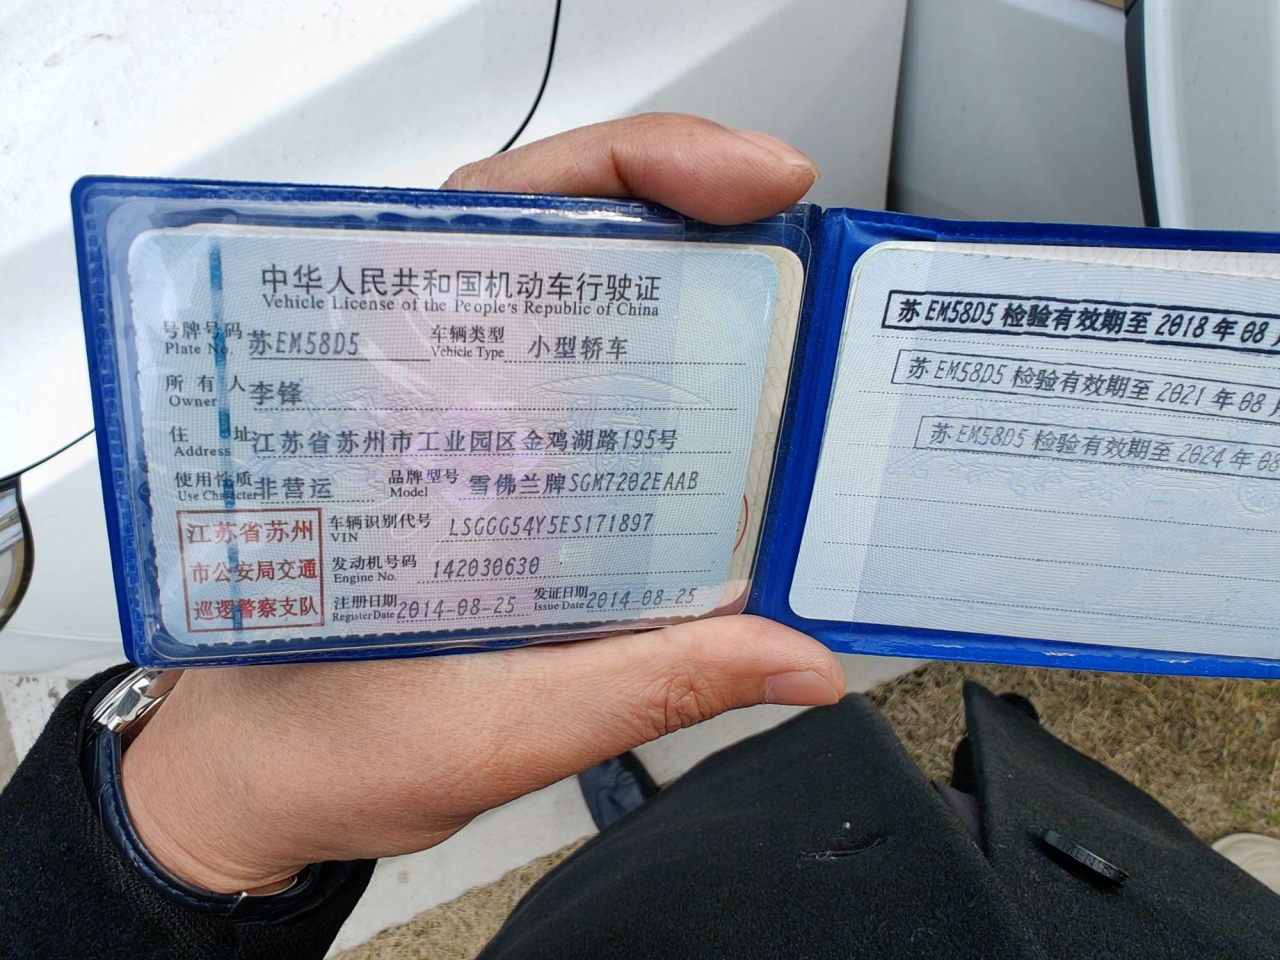 中华人民共和国机动车行驶证
Vehicle License of the People's Republic of China
号牌号码 苏EM58D5 车辆类型 小型轿车
Plate No. Vehicle Type
所有人 李锋
Owner
住址 江苏省苏州市工业园区金鸡湖路195号
Address
使用性质 非营运 品牌型号 雪佛兰牌SGM7202EAAB
Use Character Model
江苏省苏州
市公安局交通
巡逻警察支队
车辆识别代号 LSGGG54Y5ES171897
VIN
发动机号码 142030630
Engine No.
注册日期 2014-08-25 发证日期 2014-08-25
Register Date Issue Date
苏EM58D5 检验有效期至 2018年08月
苏EM58D5 检验有效期至 2021年08月
苏EM58D5 检验有效期至 2024年08